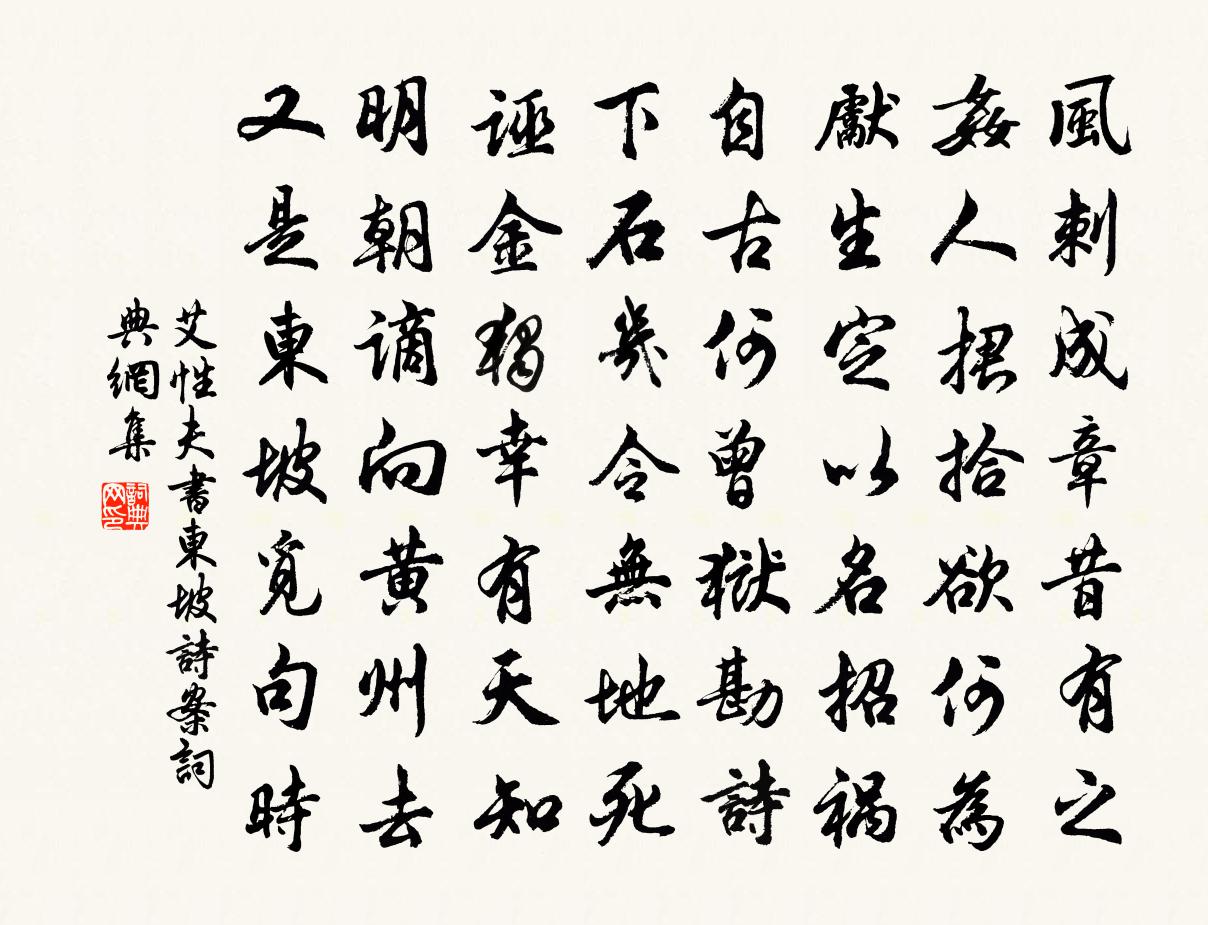 風刺成章昔有之
姦人捃拾欲何為
獻生定以名招禍
自古何曾獄勘詩
下石幾令無地死
誣金獨幸有天知
明朝謫向黄州去
又是東坡覓句時
艾性夫書東坡詩案詞
典網集
詞典
网印